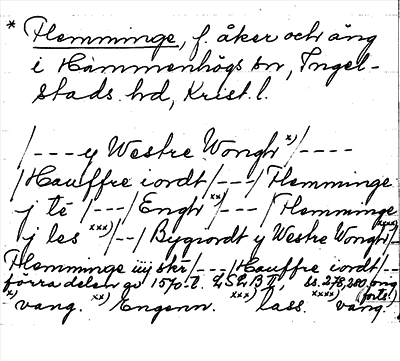 * Flemminge, f. åker och äng
i Hammenhögs sn, Ingel-
stads hd, Krist. l.
/---y Westre Wongh x)/----
/Hauffre iordt/---/Flemminge
j té /---/Engh xx)/---/Flemminge
j les xxx)/--/Bygiordt y Westre Wongh xxxx)/--
Flemminge iiij skr/---/Hauffre iordt/--
förra delen av 1570-t. LSLB II, ss. 278, 280, orig
x) vang. xx) Engenn. xxx) lass. xxxx) vang. (forts.)